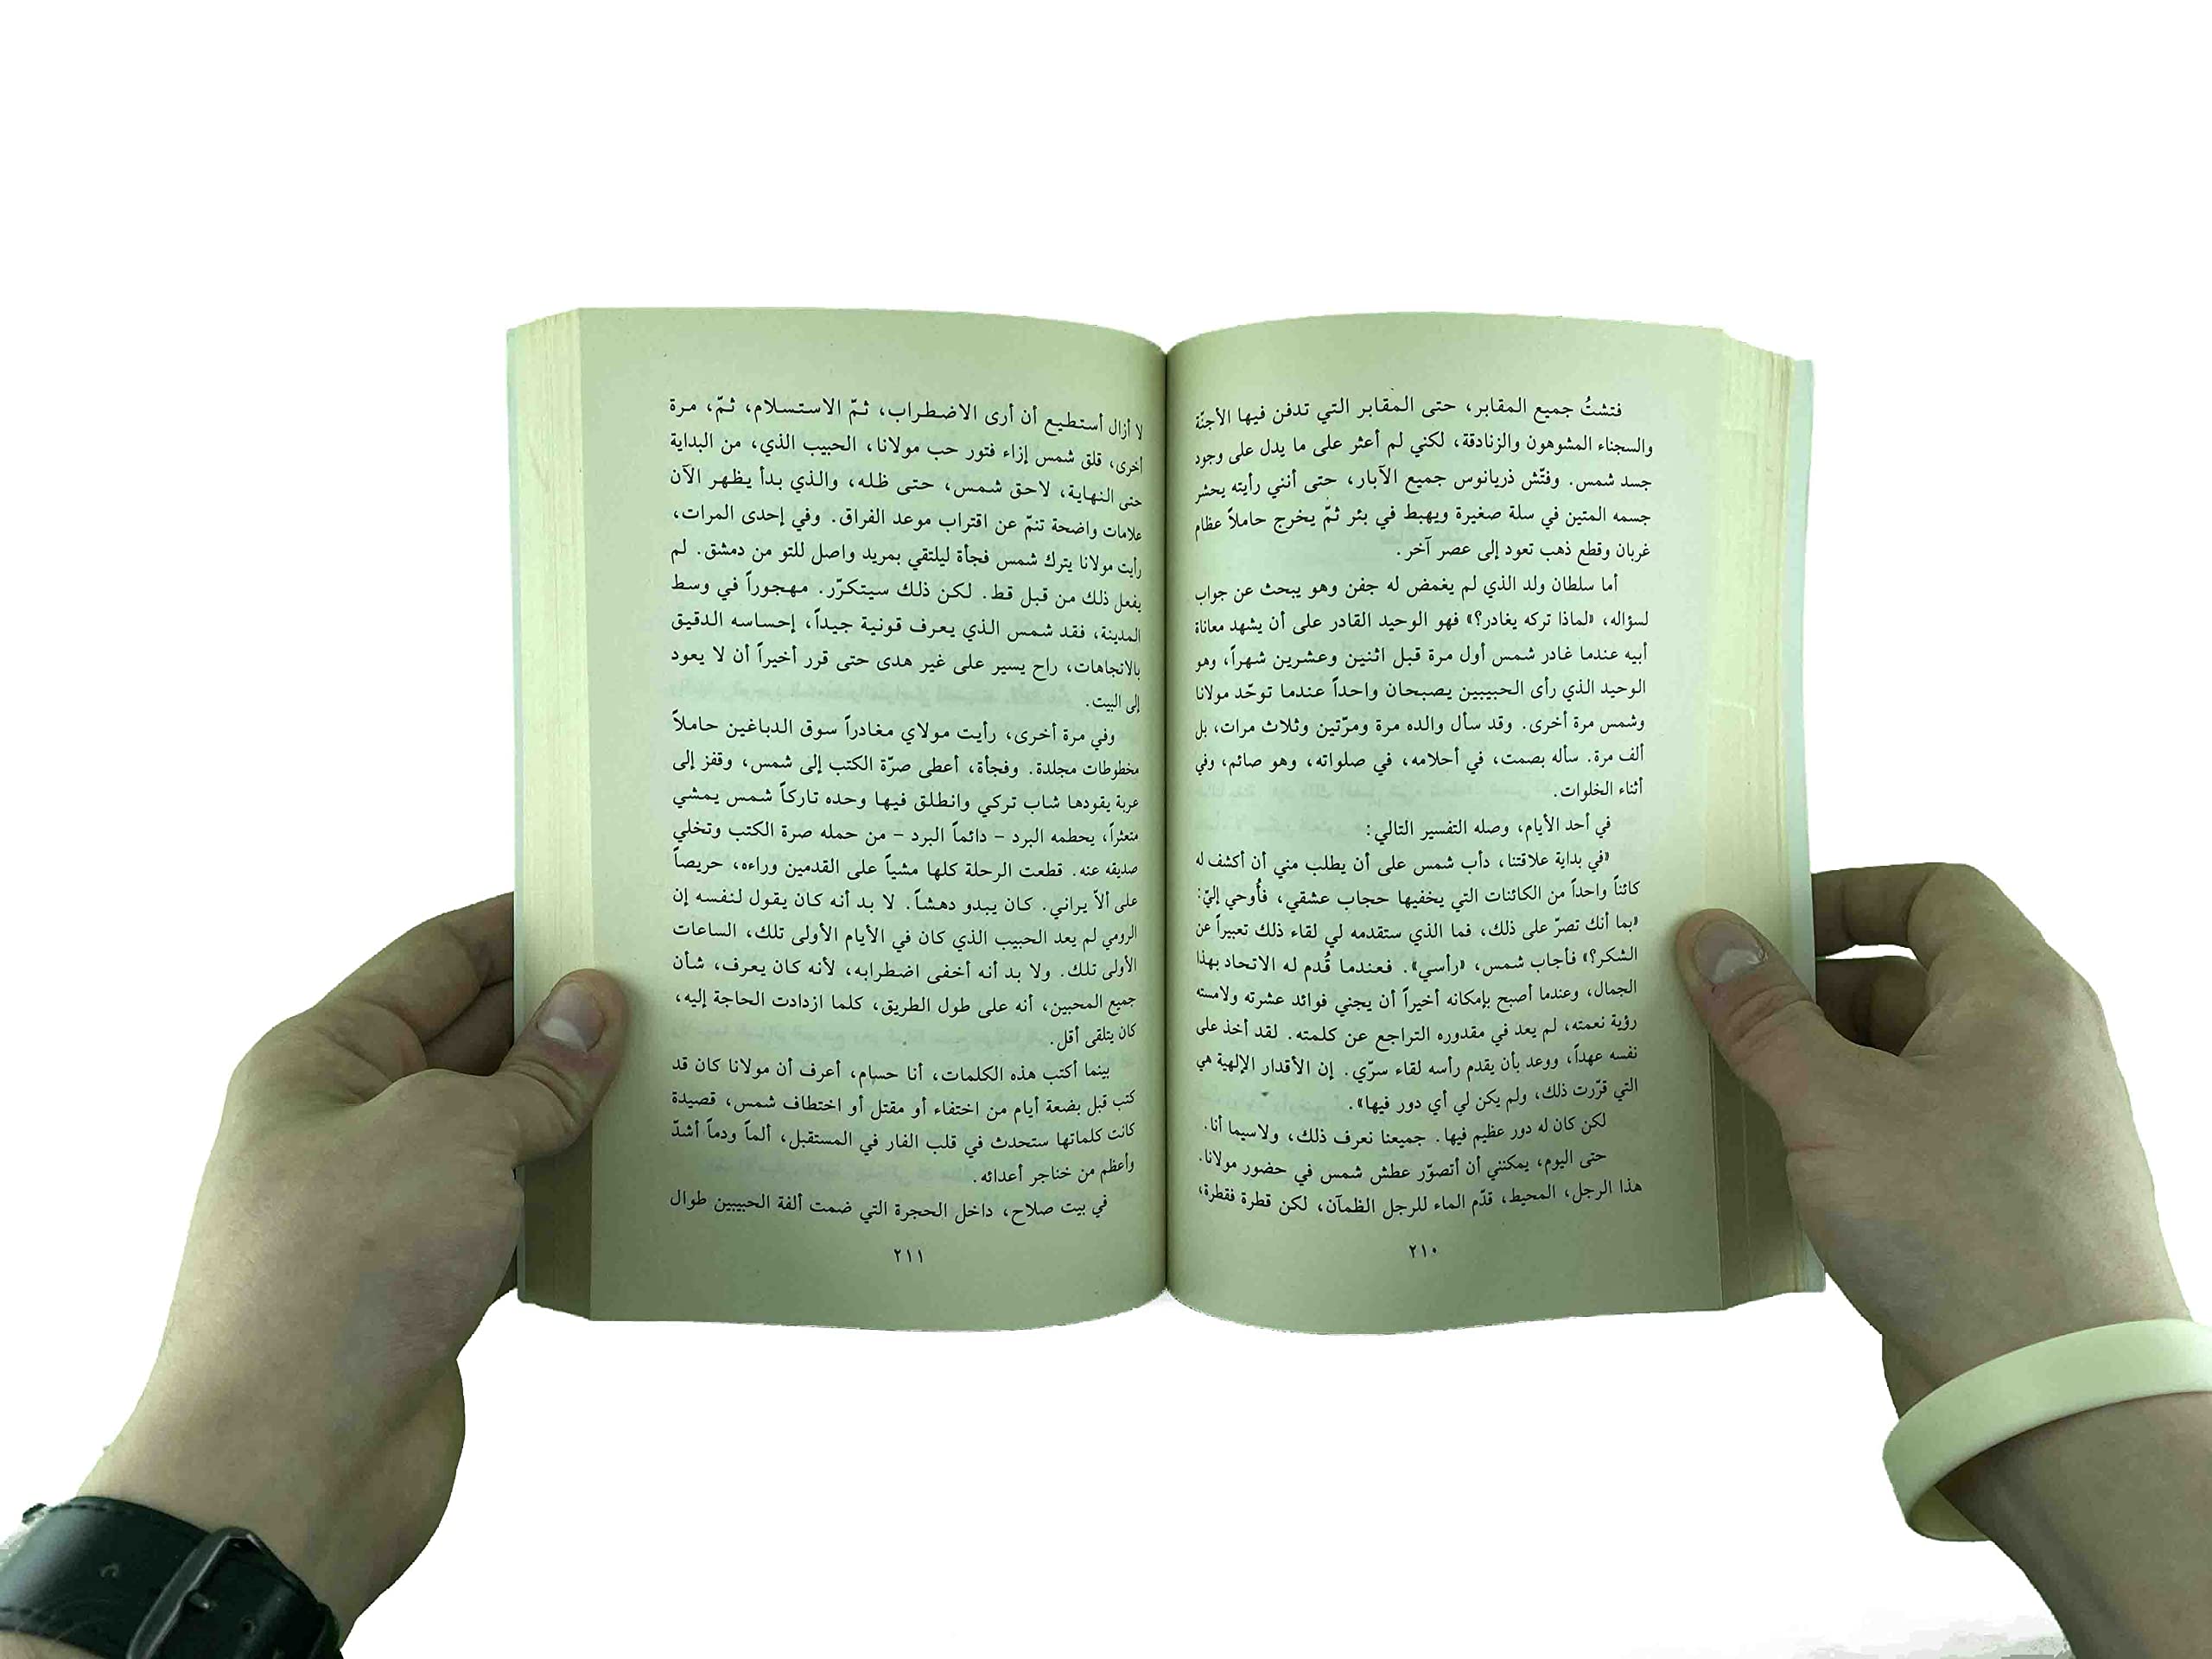 فتشتُ جميع المقابر، حتى المقابر التي تدفن فيها الأجنّة
والسجناء المشوهون والزنادقة، لكني لم أعثر على ما يدل على وجود
جسد شمس. وفتّش ذريانوس جميع الآبار، حتى أنني رأيته يحشر
جسمه المتين في سلة صغيرة ويهبط في بئر ثمّ يخرج حاملاً عظام
غربان وقطع ذهب تعود إلى عصر آخر.
أما سلطان ولد الذي لم يغمض له جفن وهو يبحث عن جواب
لسؤاله، «لماذا تركه يغادر؟» فهو الوحيد القادر على أن يشهد معاناة
أبيه عندما غادر شمس أول مرة قبل اثنين وعشرين شهراً، وهو
الوحيد الذي رأى الحبيبين يصبحان واحداً عندما توحّد مولانا
وشمس مرة أخرى. وقد سأل والده مرة ومرّتين وثلاث مرات، بل
ألف مرة. سأله بصمت، في أحلامه، في صلواته، وهو صائم، وفي
أثناء الخلوات.
في أحد الأيام، وصله التفسير التالي:
«في بداية علاقتنا، دأب شمس على أن يطلب مني أن أكشف له
كائناً واحداً من الكائنات التي يخفيها حجاب عشقي، فأُوحي إليّ:
«بما أنك تصرّ على ذلك، فما الذي ستقدمه لي لقاء ذلك تعبيراً عن
الشكر؟» فأجاب شمس، «رأسي». فعندما قُدم له الاتحاد بهذا
الجمال، وعندما أصبح بإمكانه أخيراً أن يجني فوائد عشرته ولامسته
رؤية نعمته، لم يعد في مقدوره التراجع عن كلمته. لقد أخذ على
نفسه عهداً، ووعد بأن يقدم رأسه لقاء سرّي. إن الأقدار الإلهية هي
التي قرّرت ذلك، ولم يكن لي أي دور فيها».
لكن كان له دور عظيم فيها. جميعنا نعرف ذلك، ولاسيما أنا.
حتى اليوم، يمكنني أن أتصوّر عطش شمس في حضور مولانا.
هذا الرجل، المحيط، قدّم الماء للرجل الظمآن، لكن قطرة فقطرة،
٢١٠
لا أزال أستطيع أن أرى الاضطراب، ثمّ الاستسلام، ثمّ، مرة
أخرى، قلق شمس إزاء فتور حب مولانا، الحبيب الذي، من البداية
حتى النهاية، لاحق شمس، حتى ظله، والذي بدأ يظهر الآن
علامات واضحة تنمّ عن اقتراب موعد الفراق. وفي إحدى المرات،
رأيت مولانا يترك شمس فجأة ليلتقي بمريد واصل للتو من دمشق. لم
يفعل ذلك من قبل قط. لكن ذلك سيتكرّر. مهجوراً في وسط
المدينة، فقد شمس الذي يعرف قونية جيداً، إحساسه الدقيق
بالاتجاهات، راح يسير على غير هدى حتى قرر أخيراً أن لا يعود
إلى البيت.
وفي مرة أخرى، رأيت مولاي مغادراً سوق الدباغين حاملاً
مخطوطات مجلدة. وفجأة، أعطى صرّة الكتب إلى شمس، وقفز إلى
عربة يقودها شاب تركي وانطلق فيها وحده تاركاً شمس يمشي
متعثراً، يحطمه البرد - دائماً البرد - من حمله صرة الكتب وتخلي
صديقه عنه. قطعت الرحلة كلها مشياً على القدمين وراءه، حريصاً
على ألاّ يراني. كان يبدو دهشاً. لا بد أنه كان يقول لنفسه إن
الرومي لم يعد الحبيب الذي كان في الأيام الأولى تلك، الساعات
الأولى تلك. ولا بد أنه أخفى اضطرابه، لأنه كان يعرف، شأن
جميع المحبين، أنه على طول الطريق، كلما ازدادت الحاجة إليه،
كان يتلقى أقل.
بينما أكتب هذه الكلمات، أنا حسام، أعرف أن مولانا كان قد
كتب قبل بضعة أيام من اختفاء أو مقتل أو اختطاف شمس، قصيدة
كانت كلماتها ستحدث في قلب الفار في المستقبل، ألماً ودماً أشدّ
وأعظم من خناجر أعدائه.
في بيت صلاح، داخل الحجرة التي ضمت ألفة الحبيبين طوال
٢١١